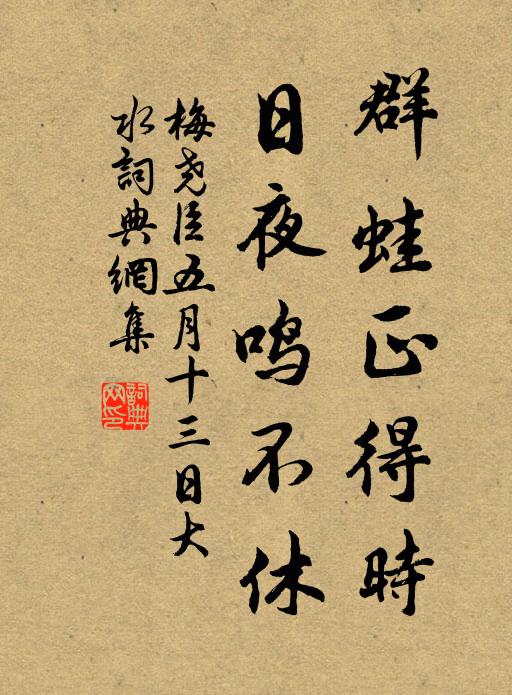 群蛙正得時
日夜鸣不休
梅尧臣五月十三日大
水詞典網集
詞典
网印